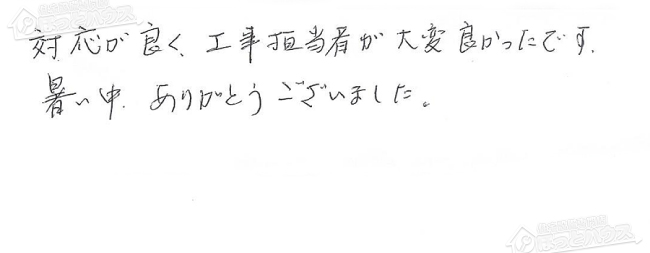 対応が良く、工事担当者が大変良かったです。
暑い中、ありがとうございました。